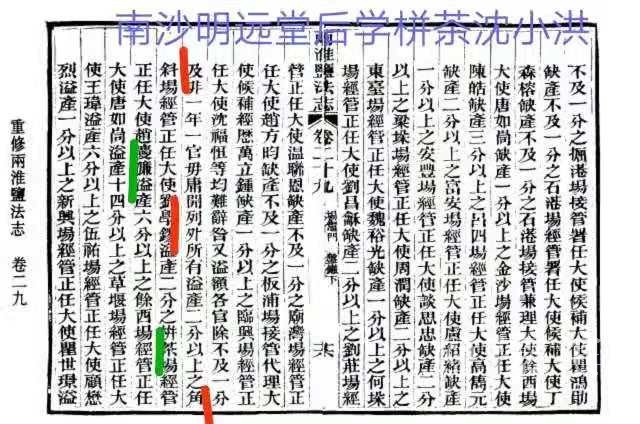 南沙明远堂后学栟茶沈小洪
不及一分之掘港場接管署任大使候補大使瞿鴻勛
缺產不及一分之石港場經管署任大使候補大使丁
森榕缺產不及一分之石港場接管兼理大使餘西場
大使唐如尚缺產一分以上之金沙場經管正任大使
陳皓缺產三分以上之呂四場經管正任大使高儁元
缺產二分以上之富安場經管正任大使盧紹緒缺產
一分以上之安豐場經管正任大使談思忠缺產二分
以上之梁垛場經管正任大使周潤缺產二分以上之
東臺場經管正任大使魏裕光缺產一分以上之何垛
場經管正任大使劉昌龢缺產二分以上之劉莊場經
兩淮鹽法志 卷二十九
管正任大使温聯恩缺產不及一分之廟灣場經管正
任大使趙方昀缺產不及一分之板浦場接管代理大
使候補經歷萬立鍾缺產一分以上之臨興場經管正
任大使沈福恒等均難辭咎又溢額各官除不及一分
及非一年一官毋庸開列外所有溢產二分以上之角
斜場經管正任大使劉
溢產二分之栟茶場經管
正任大使趙
溢產六分以上之餘西場經管正任
大使唐如尚溢產十四分以上之草堰場經管正任大
使王瑋溢產六分以上之伍祐場經管正任大使顧懋
烈溢產一分以上之新興場經管正任大使瞿世璟溢
重修兩淮鹽法志 卷二九